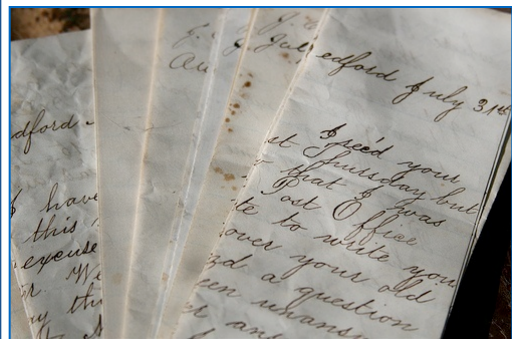 dford
I have
this
excuse
r. We
ay th
Au
edford July 31st
I rec'd your
st Thursday but
that I was
Post Office
te to write you
over your old
nd a question
een unans
r an